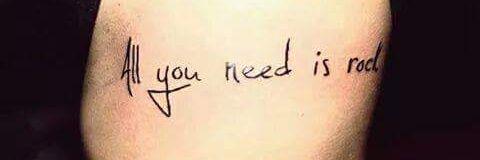 All you need is rock